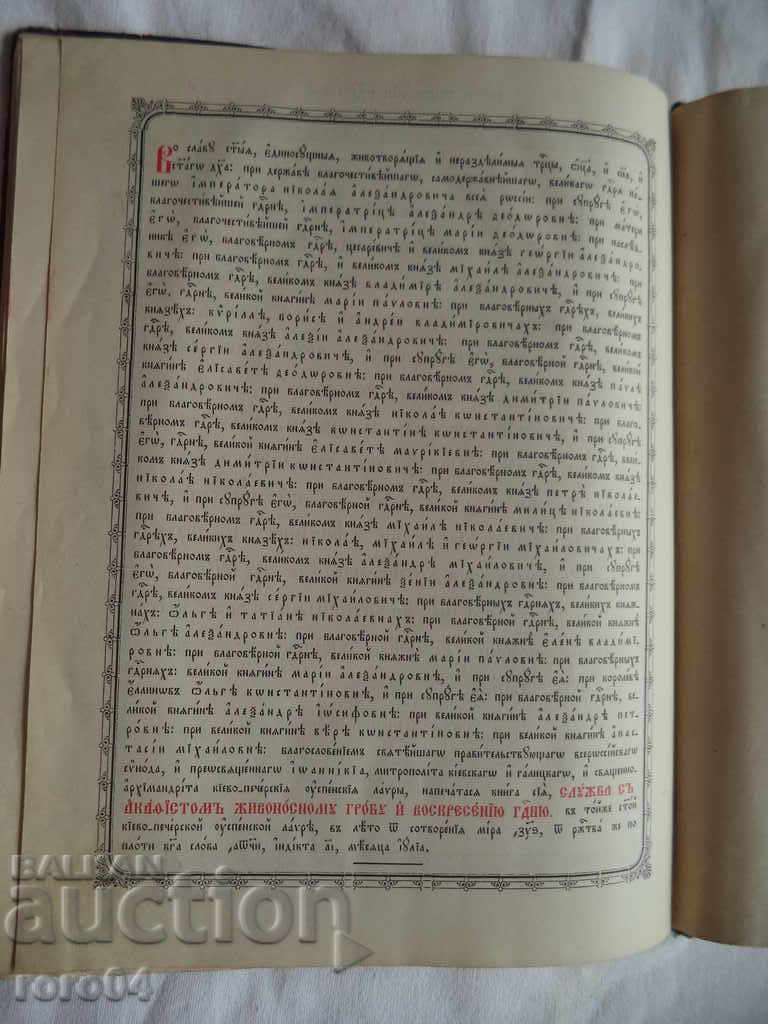 Во славу ст҃ыѧ, є҆диносꙋщныѧ, животворѧщїѧ и҆ нераздѣлимыѧ трⷪ҇цы, ѻ҆ц҃а̀, и҆ сн҃а, и҆
ст҃а́гѡ дх҃а: при держа́вѣ благочести́вѣйшагѡ, самодержа́внѣйшагѡ, вели́кагѡ гдⷭ҇рѧ на́-
шегѡ І҆МПЕРА́ТОРА НІКОЛА́Ѧ А҆ЛЕѮА́НДРОВИЧА всеѧ̀ рѡссі́и: при сꙋпрꙋ́гѣ є҆гѡ̀,
благочести́вѣйшей гдⷭ҇рнѣ, І҆МПЕРАТРИ́ЦѢ А҆ЛЕѮА́НДРѢ ѲЕО́ДѠРОВНѢ: при ма́тери
є҆гѡ̀, благочести́вѣйшей гдⷭ҇рнѣ, І҆МПЕРАТРИ́ЦѢ МАРІ́И ѲЕО́ДѠРОВНѢ: при наслѣ́д-
никѣ є҆гѡ̀, благовѣ́рномъ гдⷭ҇рѣ, цесаре́вичѣ и҆ вели́комъ кнѧ́зѣ ГЕѠ́РГІИ А҆ЛЕѮА́НДРО-
ВИЧѢ: при благовѣ́рномъ гдⷭ҇рѣ, и҆ вели́комъ кнѧ́зѣ МІХАИ́ЛѢ А҆ЛЕѮА́НДРОВИЧѢ: при
благовѣ́рномъ гдⷭ҇рѣ, вели́комъ кнѧ́зѣ ВЛАДИ́МІРѢ А҆ЛЕѮА́НДРОВИЧѢ, и҆ при сꙋпрꙋ́гѣ
є҆гѡ̀, гдⷭ҇рнѣ, вели́кой кнѧги́нѣ МАРІ́И ПА́ѴЛОВНѢ: при благовѣ́рныхъ гдⷭ҇рѣхъ, вели́кихъ
кнѧзѣ́хъ: КѴРІ́ЛЛѢ, БОРИ́СѢ и҆ А҆НДРЕ́И ВЛАДИ́МІРОВИЧАХЪ: при благовѣ́рномъ
гдⷭ҇рѣ, вели́комъ кнѧ́зѣ А҆ЛЕѮІ́И А҆ЛЕѮА́НДРОВИЧѢ: при благовѣ́рномъ гдⷭ҇рѣ, вели́комъ
кнѧ́зѣ СЕ́РГІИ А҆ЛЕѮА́НДРОВИЧѢ, и҆ при сꙋпрꙋ́гѣ є҆гѡ̀, благовѣ́рной гдⷭ҇рнѣ, вели́кой
кнѧги́нѣ Є҆ЛІСАВЕ́ТѢ ѲЕО́ДѠРОВНѢ: при благовѣ́рномъ гдⷭ҇рѣ, вели́комъ кнѧ́зѣ ПА́ѴЛѢ
А҆ЛЕѮА́НДРОВИЧѢ: при благовѣ́рномъ гдⷭ҇рѣ, вели́комъ кнѧ́зѣ ДИМИ́ТРІИ ПА́ѴЛОВИЧѢ:
при благовѣ́рномъ гдⷭ҇рѣ, вели́комъ кнѧ́зѣ НІКОЛА́Ѣ КѠНСТАНТІ́НОВИЧѢ: при благо-
вѣ́рномъ гдⷭ҇рѣ, вели́комъ кнѧ́зѣ КѠНСТАНТІ́НѢ КѠНСТАНТІ́НОВИЧѢ, и҆ при сꙋпрꙋ́гѣ
є҆гѡ̀, гдⷭ҇рнѣ, вели́кой кнѧги́нѣ Є҆ЛІСАВЕ́ТѢ МАѴРІ́КІЕВНѢ: при благовѣ́рномъ гдⷭ҇рѣ, вели́-
комъ кнѧ́зѣ ДИМИ́ТРІИ КѠНСТАНТІ́НОВИЧѢ: при благовѣ́рномъ гдⷭ҇рѣ, вели́комъ кнѧ́зѣ
НІКОЛА́Ѣ НІКОЛА́ЕВИЧѢ: при благовѣ́рномъ гдⷭ҇рѣ, вели́комъ кнѧ́зѣ ПЕТРѢ̀ НІКОЛА́Е-
ВИЧѢ, и҆ при сꙋпрꙋ́гѣ є҆гѡ̀, благовѣ́рной гдⷭ҇рнѣ, вели́кой кнѧги́нѣ МИ́ЛИЦѢ НІКОЛА́ЕВНѢ:
при благовѣ́рномъ гдⷭ҇рѣ, вели́комъ кнѧ́зѣ МІХАИ́ЛѢ НІКОЛА́ЕВИЧѢ: при благовѣ́рныхъ
гдⷭ҇рѣхъ, вели́кихъ кнѧзѣ́хъ: НІКОЛА́Ѣ, МІХАИ́ЛѢ и҆ ГЕѠ́РГІИ МІХА́ЙЛОВИЧАХЪ: при
благовѣ́рномъ гдⷭ҇рѣ, вели́комъ кнѧ́зѣ А҆ЛЕѮА́НДРѢ МІХА́ЙЛОВИЧѢ, и҆ при сꙋпрꙋ́гѣ
є҆гѡ̀, благовѣ́рной гдⷭ҇рнѣ, вели́кой кнѧги́нѣ ѮЕ́НІИ А҆ЛЕѮА́НДРОВНѢ: при благовѣ́рномъ
гдⷭ҇рѣ, вели́комъ кнѧ́зѣ СЕ́РГІИ МІХА́ЙЛОВИЧѢ: при благовѣ́рныхъ гдⷭ҇рнѧхъ, вели́кихъ кнѧж-
на́хъ: Ѻ҆́ЛЬГѢ и҆ ТАТІА́НѢ НІКОЛА́ЕВНАХЪ: при благовѣ́рной гдⷭ҇рнѣ, вели́кой кнѧги́нѣ
Ѻ҆́ЛЬГѢ А҆ЛЕѮА́НДРОВНѢ: при благовѣ́рной гдⷭ҇рнѣ, вели́кой кнѧжнѣ̀ Є҆ЛЕ́НѢ ВЛАДИ́МІ-
РОВНѢ: при благовѣ́рной гдⷭ҇рнѣ, вели́кой кнѧжнѣ̀ МАРІ́И ПА́ѴЛОВНѢ: при благовѣ́рныхъ
гдⷭ҇рнѧхъ: вели́кой кнѧги́нѣ МАРІ́И А҆ЛЕѮА́НДРОВНѢ, и҆ при сꙋпрꙋ́гѣ є҆ѧ̀: при короле́вѣ
є҆́ллинѡвъ Ѻ҆́ЛЬГѢ КѠНСТАНТІ́НОВНѢ, и҆ при сꙋпрꙋ́гѣ є҆ѧ̀: при благовѣ́рной гдⷭ҇рнѣ, ве-
ли́кой кнѧги́нѣ А҆ЛЕѮА́НДРѢ І҆Ѡ́СИФОВНѢ: при вели́кой кнѧги́нѣ А҆ЛЕѮА́НДРѢ ПЕТ-
РО́ВНѢ: при вели́кой кнѧги́нѣ ВѢ́РѢ КѠНСТАНТІ́НОВНѢ: при вели́кой кнѧги́нѣ А҆НАС-
ТАСІ́И МІХА́ЙЛОВНѢ: благослове́нїемъ свѧтѣ́йшагѡ прави́тельствꙋющагѡ всерѡссі́йскагѡ
сѷно́да, и҆ преѡсвѧще́ннагѡ І҆ѡанни́кїа, митрополі́та кі́евскагѡ и҆ га́лицкагѡ, и҆ свѧще́нно-
а҆рхїмандрі́та кі́ево-пече́рскїѧ ᲂу҆спе́нскїѧ ла́ѵры, напеча́тасѧ кни́га сїѧ̀, СЛꙊ́ЖБА СЪ
А҆КА́ѲІСТОМЪ ЖИВОНО́СНОМꙊ ГРО́БꙊ И҆ ВОСКРЕСЕ́НЇЮ ГДⷭ҇НЮ. въ то́йже ст҃о́й
кі́ево-пече́рской ᲂу҆спе́нской ла́ѵрѣ, въ лѣ́то ѿ сотворе́нїѧ мі́ра ҂зуѕ, ѿ рж҇тва́ же по
пло́ти бг҃а сло́ва ҂аѡчи, і҆ндікта аі, мѣ́сѧца і҆ꙋ́лїа.
BALKAN
auction
roro04